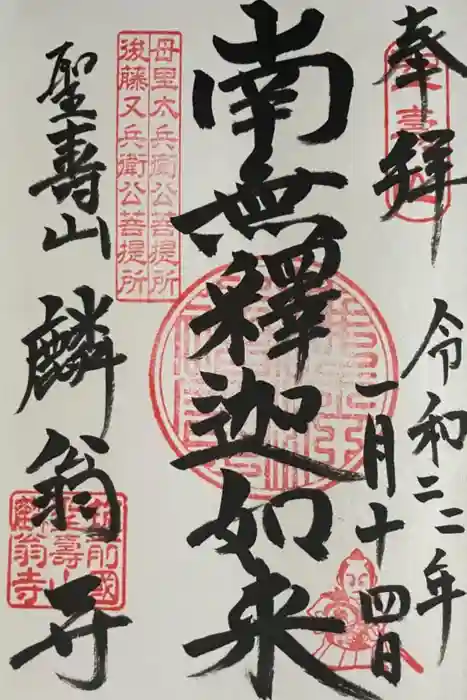 奉拜
令和二二年
一月十四日
南無釋迦如来
母里太兵衛公菩提所
後藤又兵衛公菩提所
聖壽山 麟翁寺
筑前國
聖壽山
麟翁寺